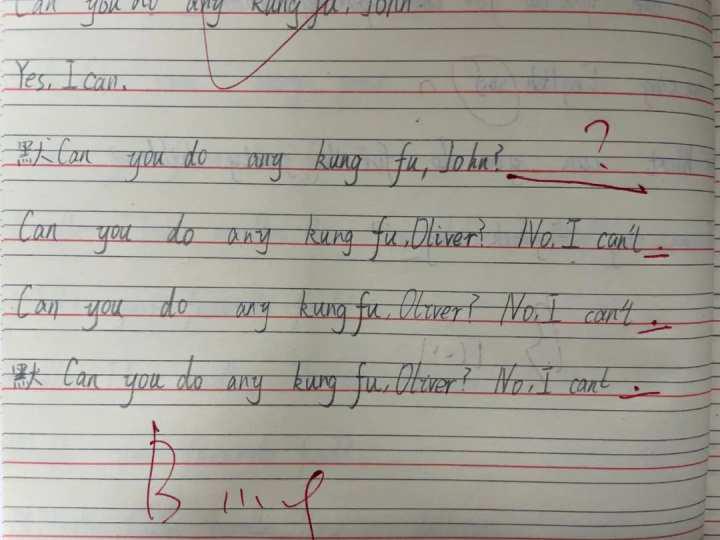 Can you do any kung fu, John.
Yes, I can.
默 Can you do any kung fu, John? ?
Can you do any kung fu, Oliver? No. I can't .
Can you do any kung fu, Oliver? No. I can't .
默 Can you do any kung fu, Oliver? No, I cant .
B